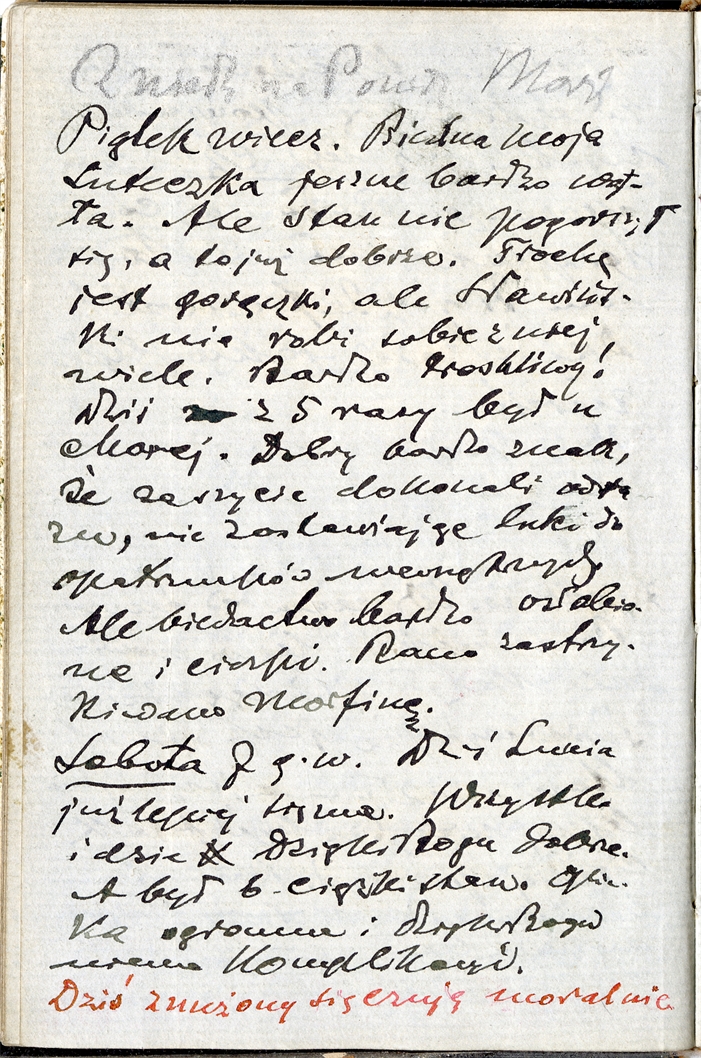 Piątek wiecz. Biedna moja
Luteczka jeszcze bardzo wąt-
ła. Ale stan nie pogorszył
się, a to już dobrze. Trochę
jest gorączki, ale
ki nie robi sobie z niej
wiele. Bardzo troskliwy!
Dziś z 5 razy był u
chorej. Dobry bardzo znak,
że zaszycie dokonali odra
zu, nie zostawiając luki do
opatrunków wewnętrznych
Ale biedactwo bardzo osłabio-
ne i cierpi. Rano zastrzy-
kiwano morfinę.
Sobota 7 g. w. Dziś Lunia
już lepiej się ma. Wszystko
idzie dzięki Bogu dobrze.
A był b. ciężki stan.
ka ogromna i dzięki Bogu
niema komplikacyi.
Dziś znużony się czuję moralnie